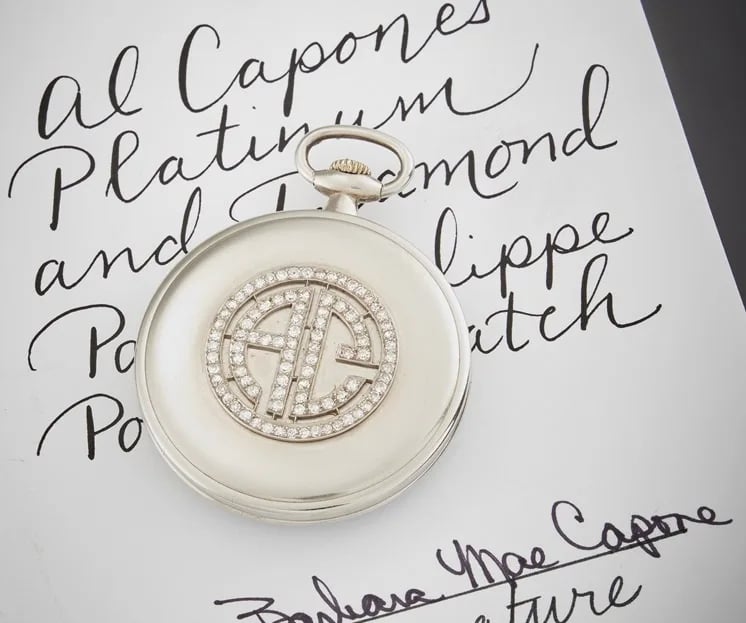 Al Capone's
Platinum
and Diamond
Pa lippe
Po atch
AC
Barbara Mae Capone
ture